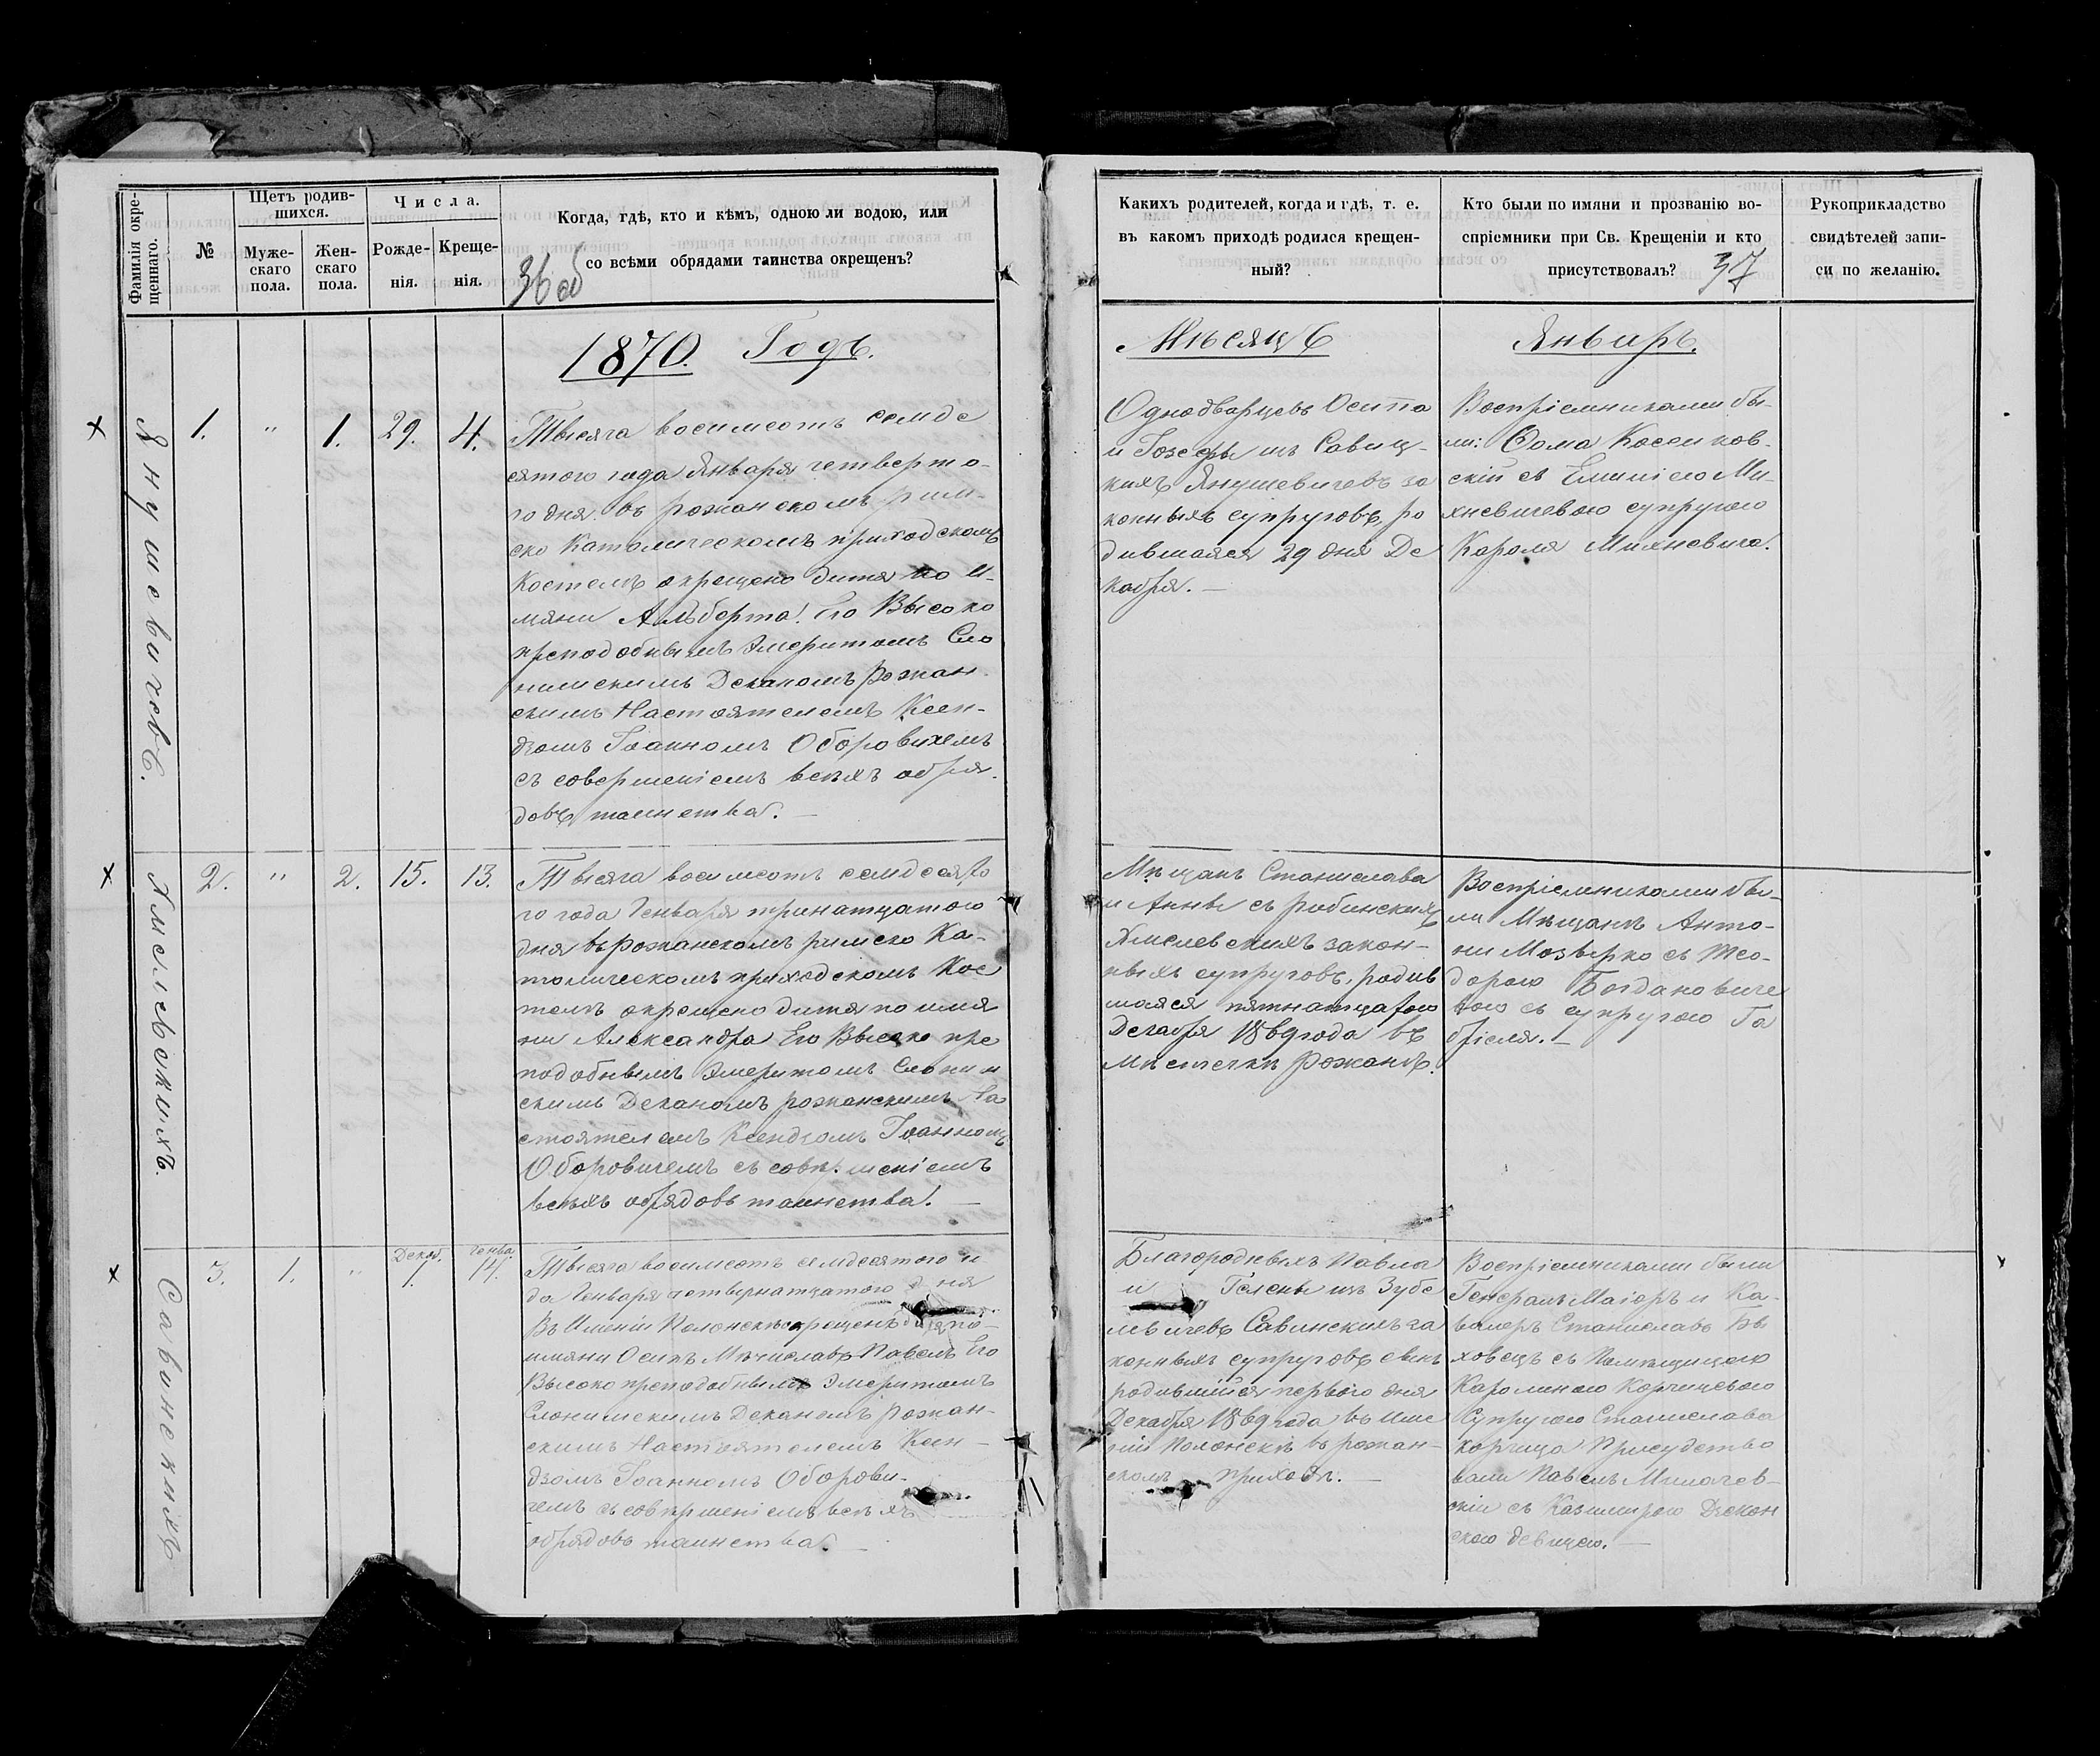 Фамилія окре-
щеннаго.
№
Щетъ родив-
шихся.
Муже-
скаго
пола.
Жен-
скаго
пола.
Числа.
Рожде-
нія.
Креще-
нія.
Когда, гдѣ, кто и кѣмъ, одною ли водою, или
со всѣми обрядами таинства окрещенъ?
36 об
1870. Годъ.
Янушевичовъ.
1. " 1. 29. 4.
Тысяча восимсотъ семде
сятого года Января четверто-
го дня въ рожанскомъ рим-
ско Католическомъ приходскомъ
Костелѣ окрещено дитя по и-
мяни Альберта Его Высоко
преподобнымъ Эмеритомъ Сло
нимскимъ Деканомъ рожан-
скимъ Настоятелемъ Ксен-
дзомъ Іоанномъ Оборовичемъ
съ совершеніемъ всѣхъ обря-
довъ таинства.
Хмелевскихъ.
2. " 2. 15. 13.
Тысяча восимсотъ семдесято
го года Генваря тринатцатого
дня въ рожанскомъ римско Ка-
толическомъ приходскомъ Кос
телѣ окрещено дитя по имя
ни Александра Его Высоко пре
подобнымъ Эмеритомъ Слоним
скимъ Деканомъ рожанскимъ На
стоятелемъ Ксендзомъ Іоанномъ
Оборовичемъ съ совершеніемъ
всѣхъ обрядовъ таинства.
Савинскихъ
3. 1. " Декаб. 1. Генва. 14.
Тысяча восимсотъ семдесятого го
да Генваря четвернатцатого дня
Въ Имѣніи Полонскѣ окрещенъ дитя по
имяни Осипъ Мѣчиславъ Павелъ Его
Высоко преподобнымъ Эмеритомъ
Слонимскимъ Деканомъ рожан-
скимъ Настоятелемъ Ксен-
дзомъ Іоанномъ Оборови-
чемъ съ совершеніемъ всѣхъ
обрядовъ таинства.
Какихъ родителей, когда и гдѣ, т. е.
въ какомъ приходѣ родился крещен-
ный?
Кто были по имяни и прозванію во-
спріемники при Св. Крещеніи и кто
присутствовалъ?
37
Рукоприкладство
свидѣтелей запи-
си по желанію.
Мѣсяцъ
Январь.
Однодварцевъ Осипа
и Іозефы изъ Савиц-
кихъ Янушевичевъ за
конныхъ супруговъ, ро
дившаяся 29 дня Де
кабря.
Воспріемниками бы-
ли: Фома Косси ков-
скій съ Емиліею Ми-
хневичевою супругою
Кароля Михневича.
Мѣщанъ Станислава
и Анны съ рабинскихъ
Хмелевскихъ закон-
ныхъ супруговъ, родив
шаяся пятнатцатого
Декабря 1869 года въ
Мѣстечкѣ Рожанѣ.
Воспріемниками бы-
ли Мѣщанъ Анто-
ни Мозырко съ Тео-
дорою Богдановиче
вою съ супругою Га
бріеля.
Благородныхъ Павла
и Гелены изъ Зубе
левичевъ Савинскихъ за
конныхъ супруговъ сынъ
родившійся первого дня
Декабря 1869 года въ име
ніи Полонскѣ въ рожан-
скомъ приходѣ.
Воспріемниками были
Генералъ Маіоръ и Ка-
валеръ Станиславъ Бы
ховецъ съ Помѣщицею
Каролиною Корчицевою
Супругою Станислава
корчица Присудство
вали Павелъ Милачев-
скій съ Казимирою Дзекон
скою девицею.